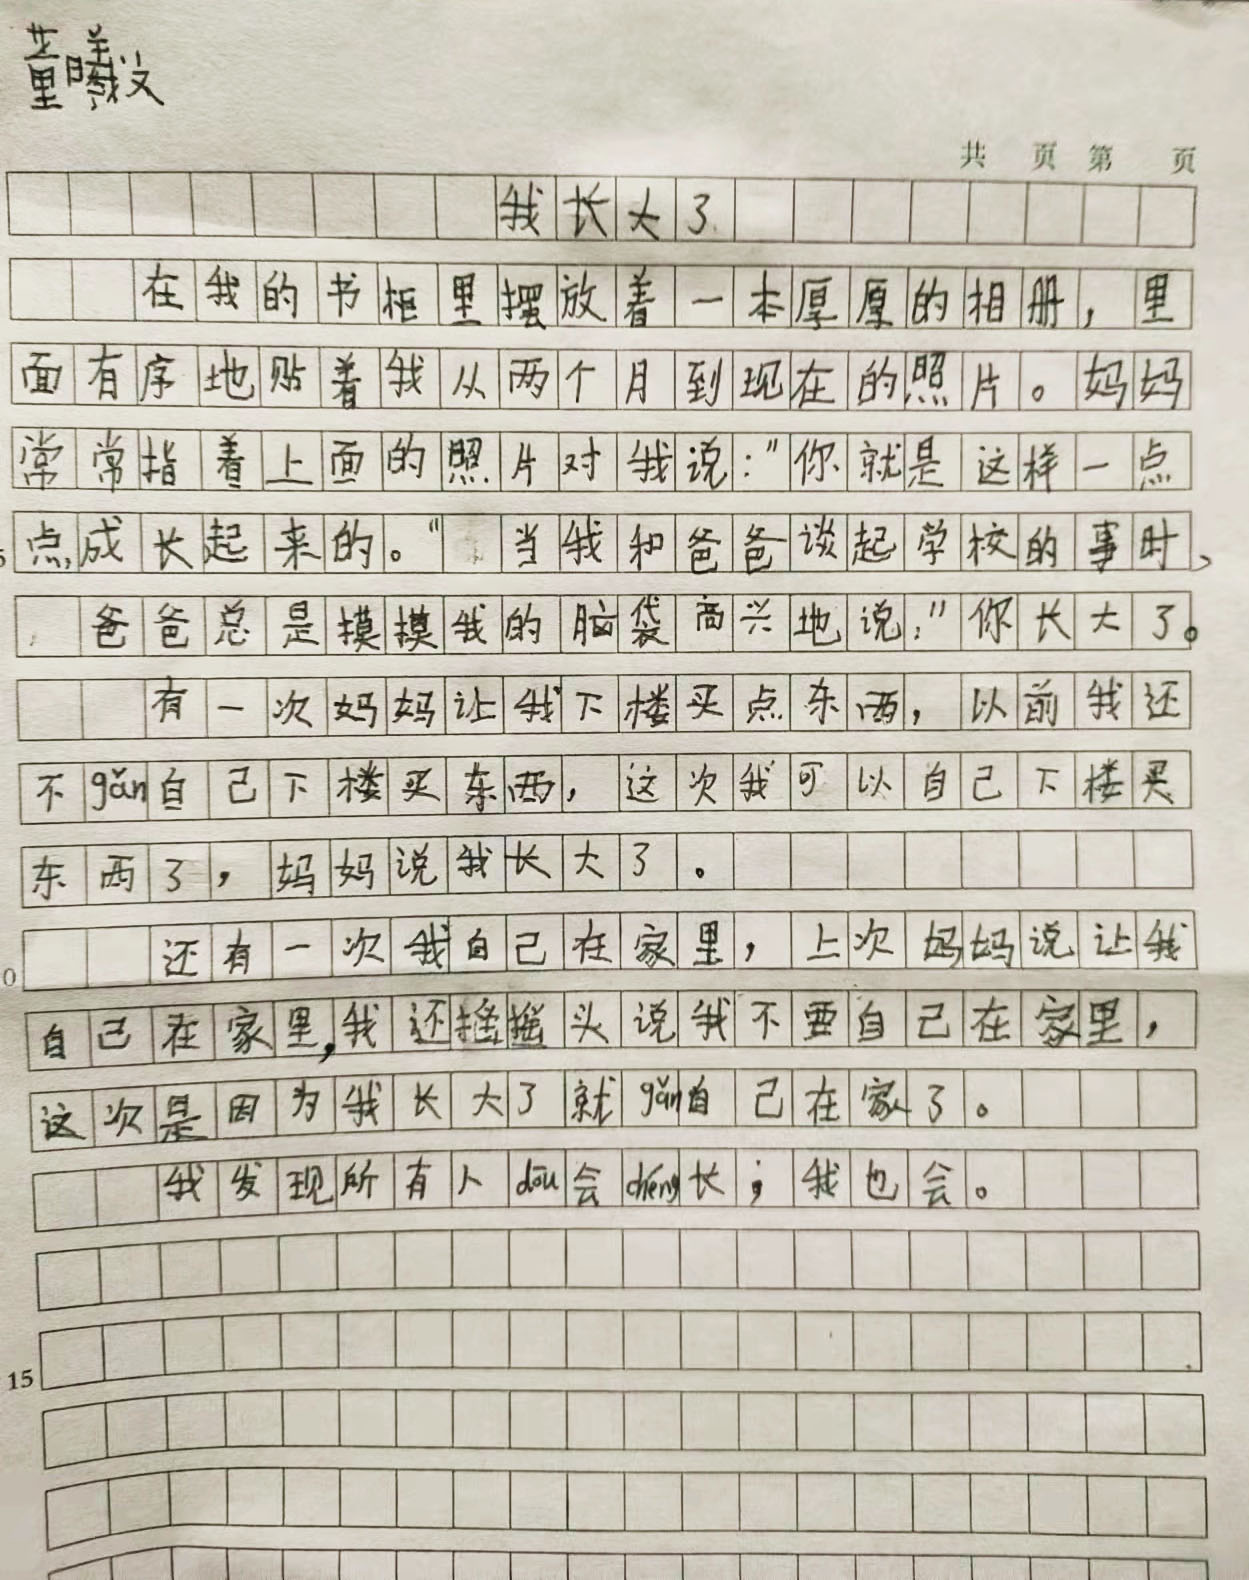 董曦文
共 页 第 页
我长大了
在我的书柜里摆放着一本厚厚的相册，里
面有序地贴着我从两个月到现在的照片。妈妈
常常指着上面的照片对我说："你就是这样一点
点成长起来的。" 当我和爸爸谈起学校的事时、
爸爸总是摸摸我的脑袋高兴地说："你长大了。
有一次妈妈让我下楼买点东西，以前我还
不gǎn自己下楼买东西，这次我可以自己下楼买
东西了，妈妈说我长大了。
还有一次我自己在家里，上次妈妈说让我
自己在家里，我还摇摇头说我不要自己在家里，
这次是因为我长大了就gǎn自己在家了。
我发现所有人dōu会chéng长；我也会。
15